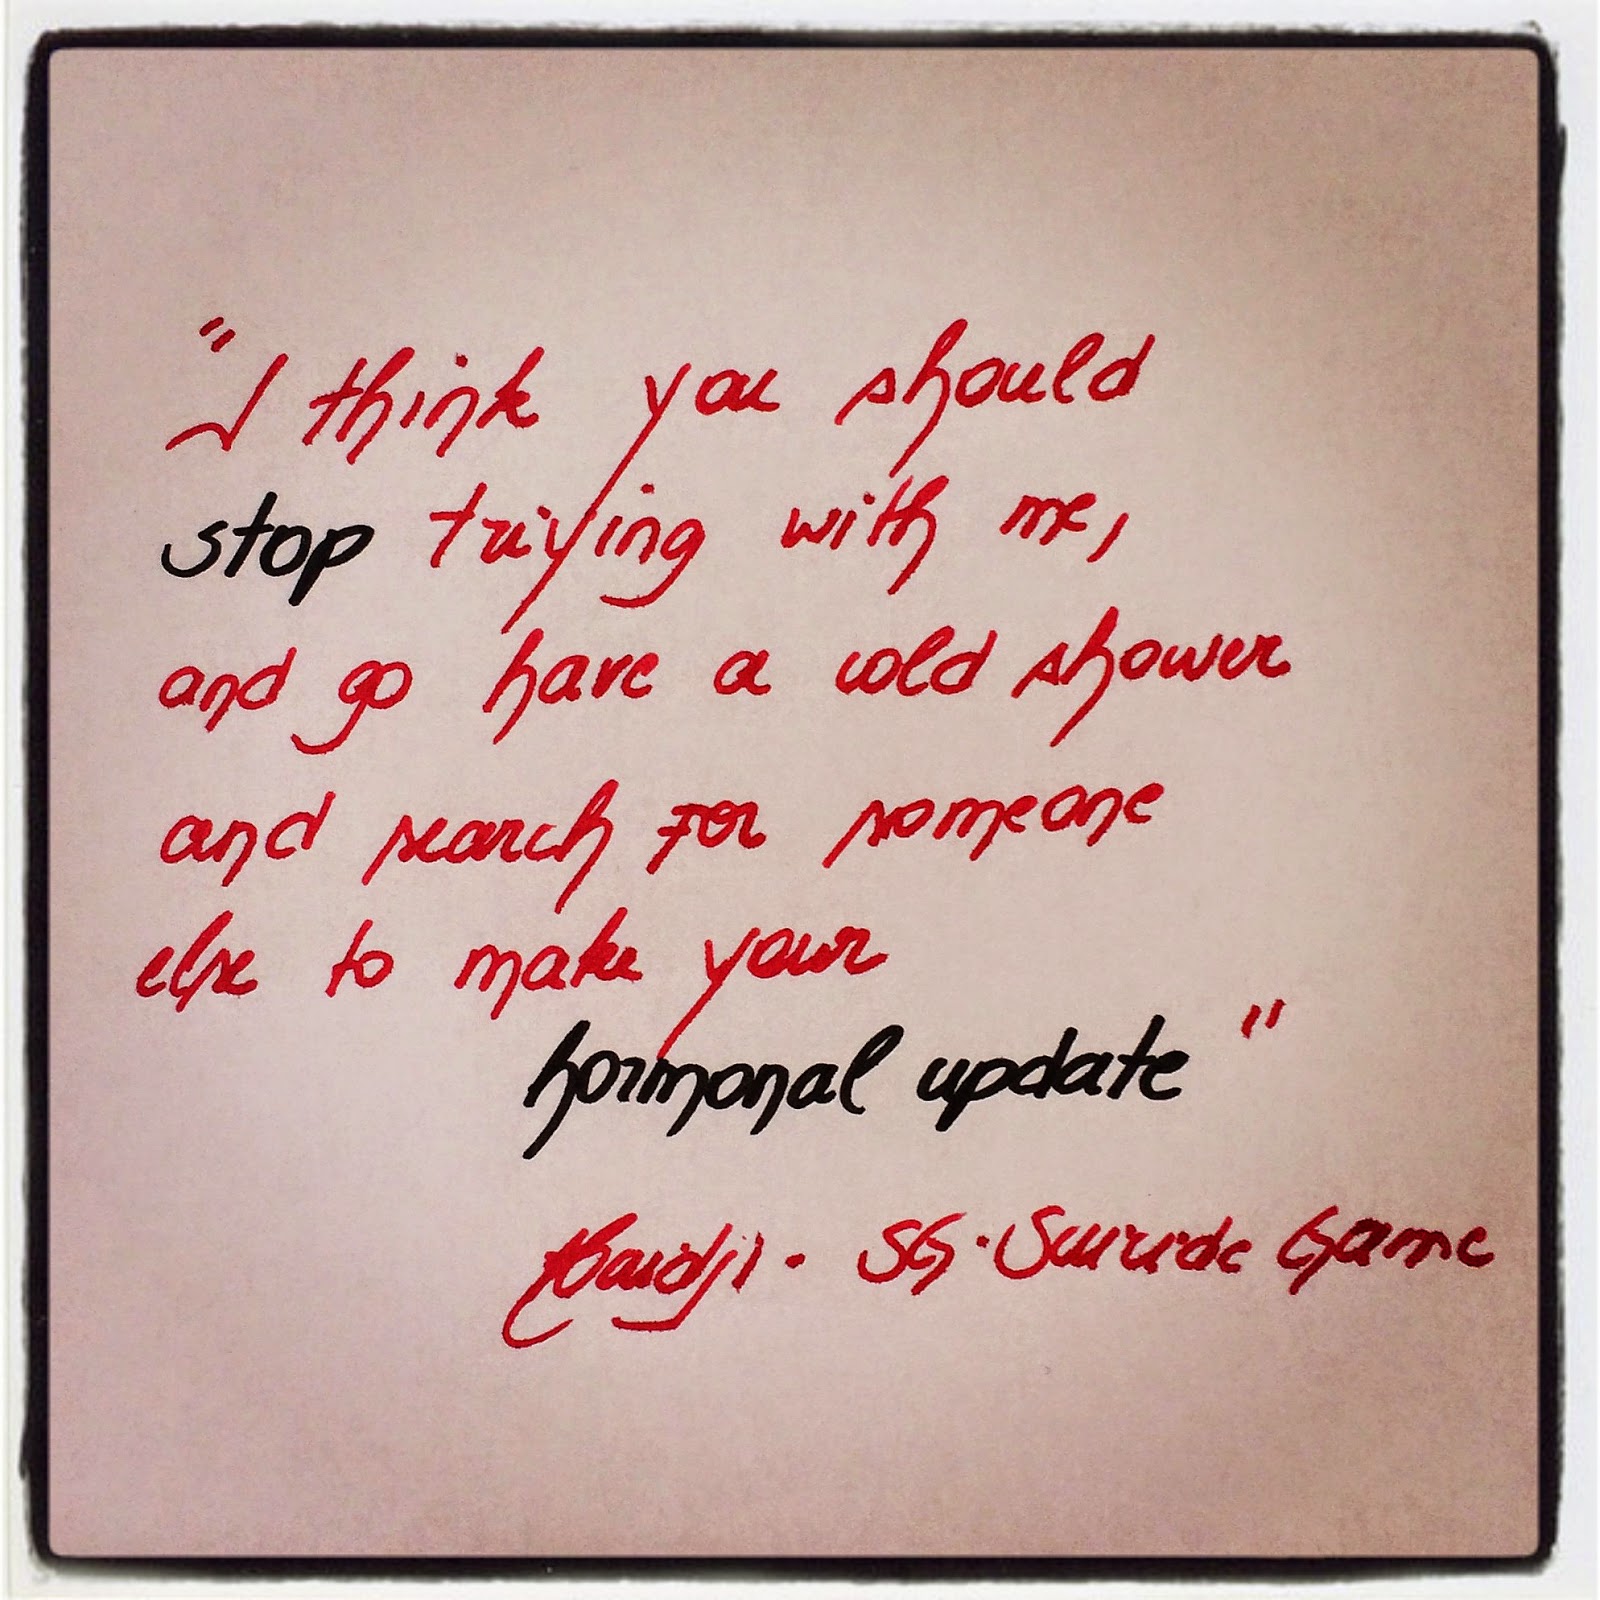 "I think you should
stop triying with me,
and go have a cold shower
and search for someone
else to make your
hormonal update"
SG. Suicide Game